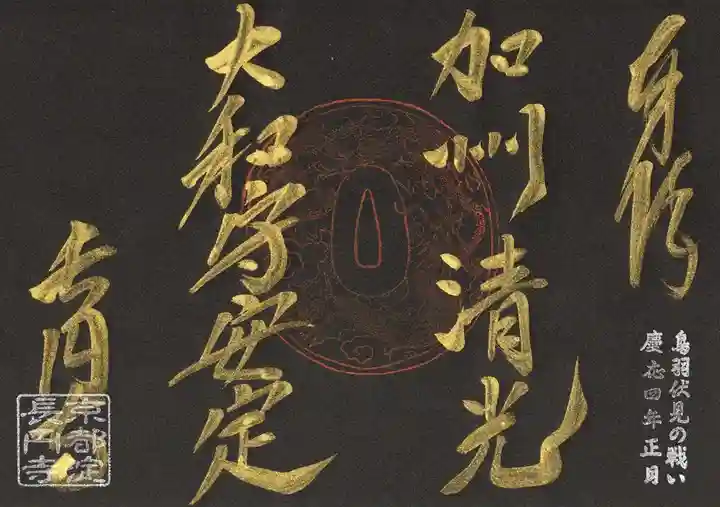 奉拝
鳥羽伏見の戦い
慶応四年正月
加州清光
大和守安定
長円寺
京都淀
長円寺